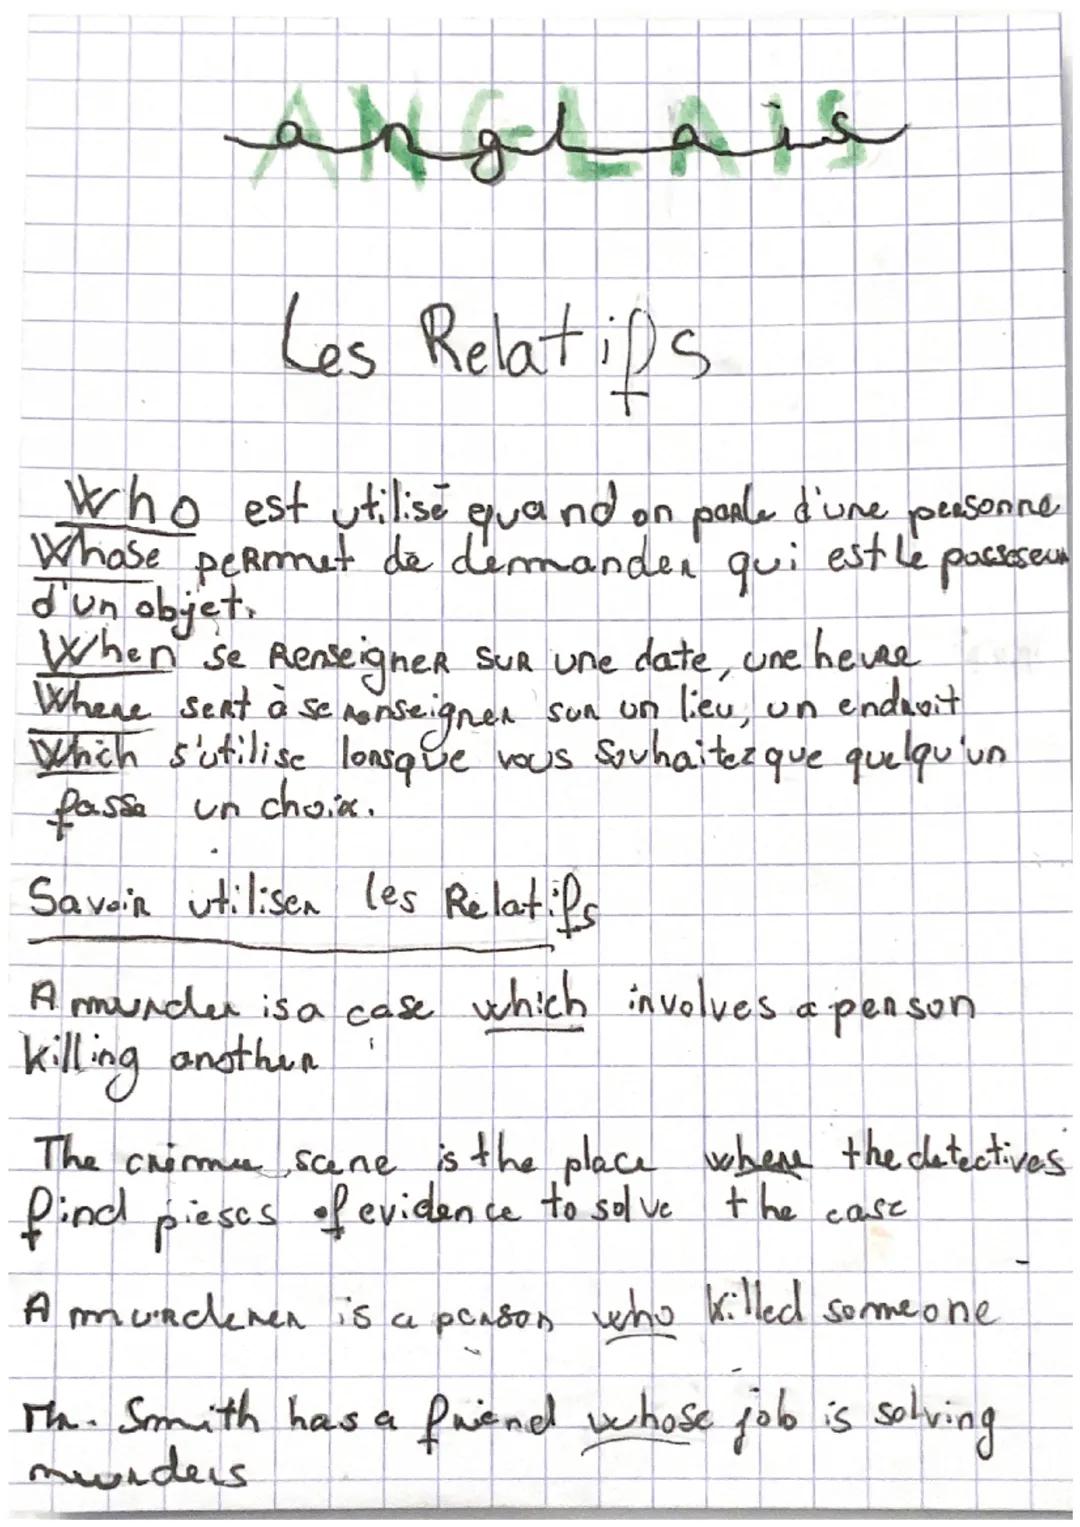 ANGLAIS
anglais
Les Relatifs
Who est utilisé quand on parle d'une personne
Whose permet de demander qui est le possesseur
d'un objet.
When se Renseigner sur une date, une heure
Where sert à se renseigner sur un lieu, un endroit
Which s'utilise lorsque vous souhaitez que quelqu'un
fasse un choix.
Savoir utiliser les Relatifs
A murder is a case which involves a person
killing another
The crime scene is the place where the detectives
find pieses of evidence to solve the case
A murderer is a person who killed someone
Mr. Smith has a friend whose job is solving
murders